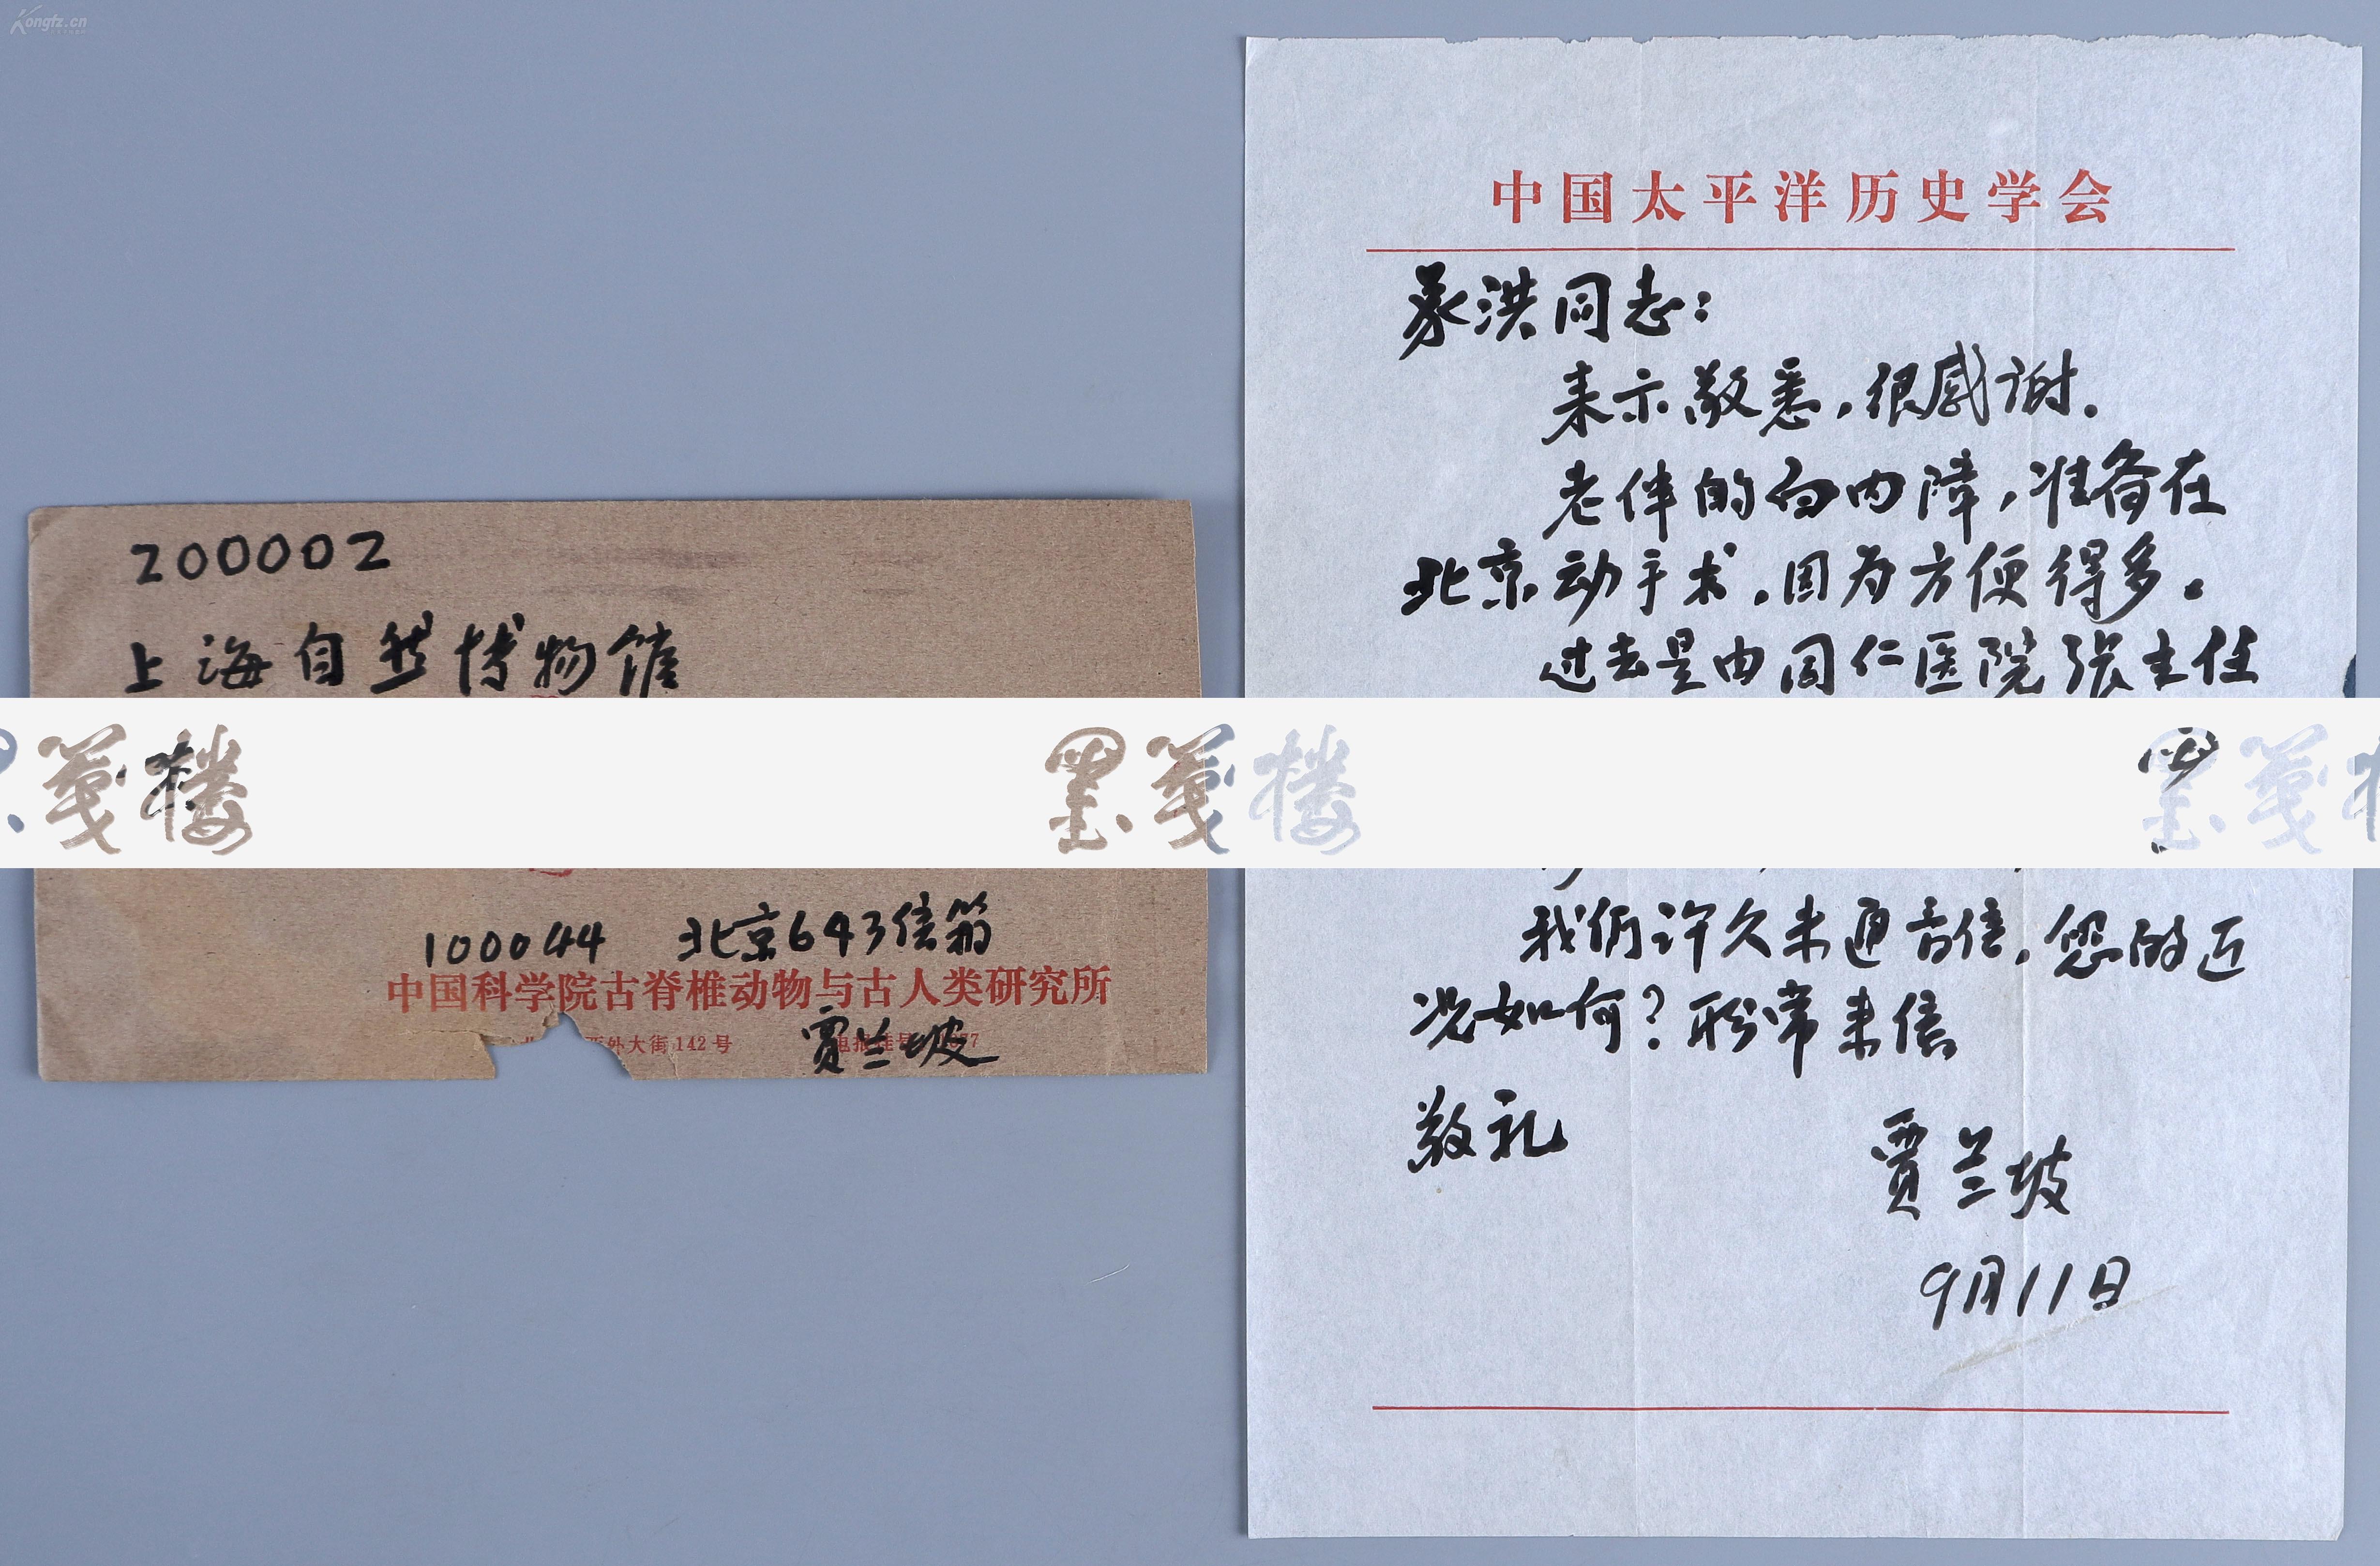 Kongfz.cn
200002
上海自然博物馆
墨笺楼
100044 北京643信箱
中国科学院古脊椎动物与古人类研究所
西外大街142号
贾兰坡
中国太平洋历史学会
承洪同志:
来示敬悉,很感谢.
老伴的白内障,准备在
北京动手术.因为方便得多.
过去是由同仁医院张主任
墨笺
我们许久未通音信.您的近
况如何?盼常来信
敬礼
贾兰坡
9月11日